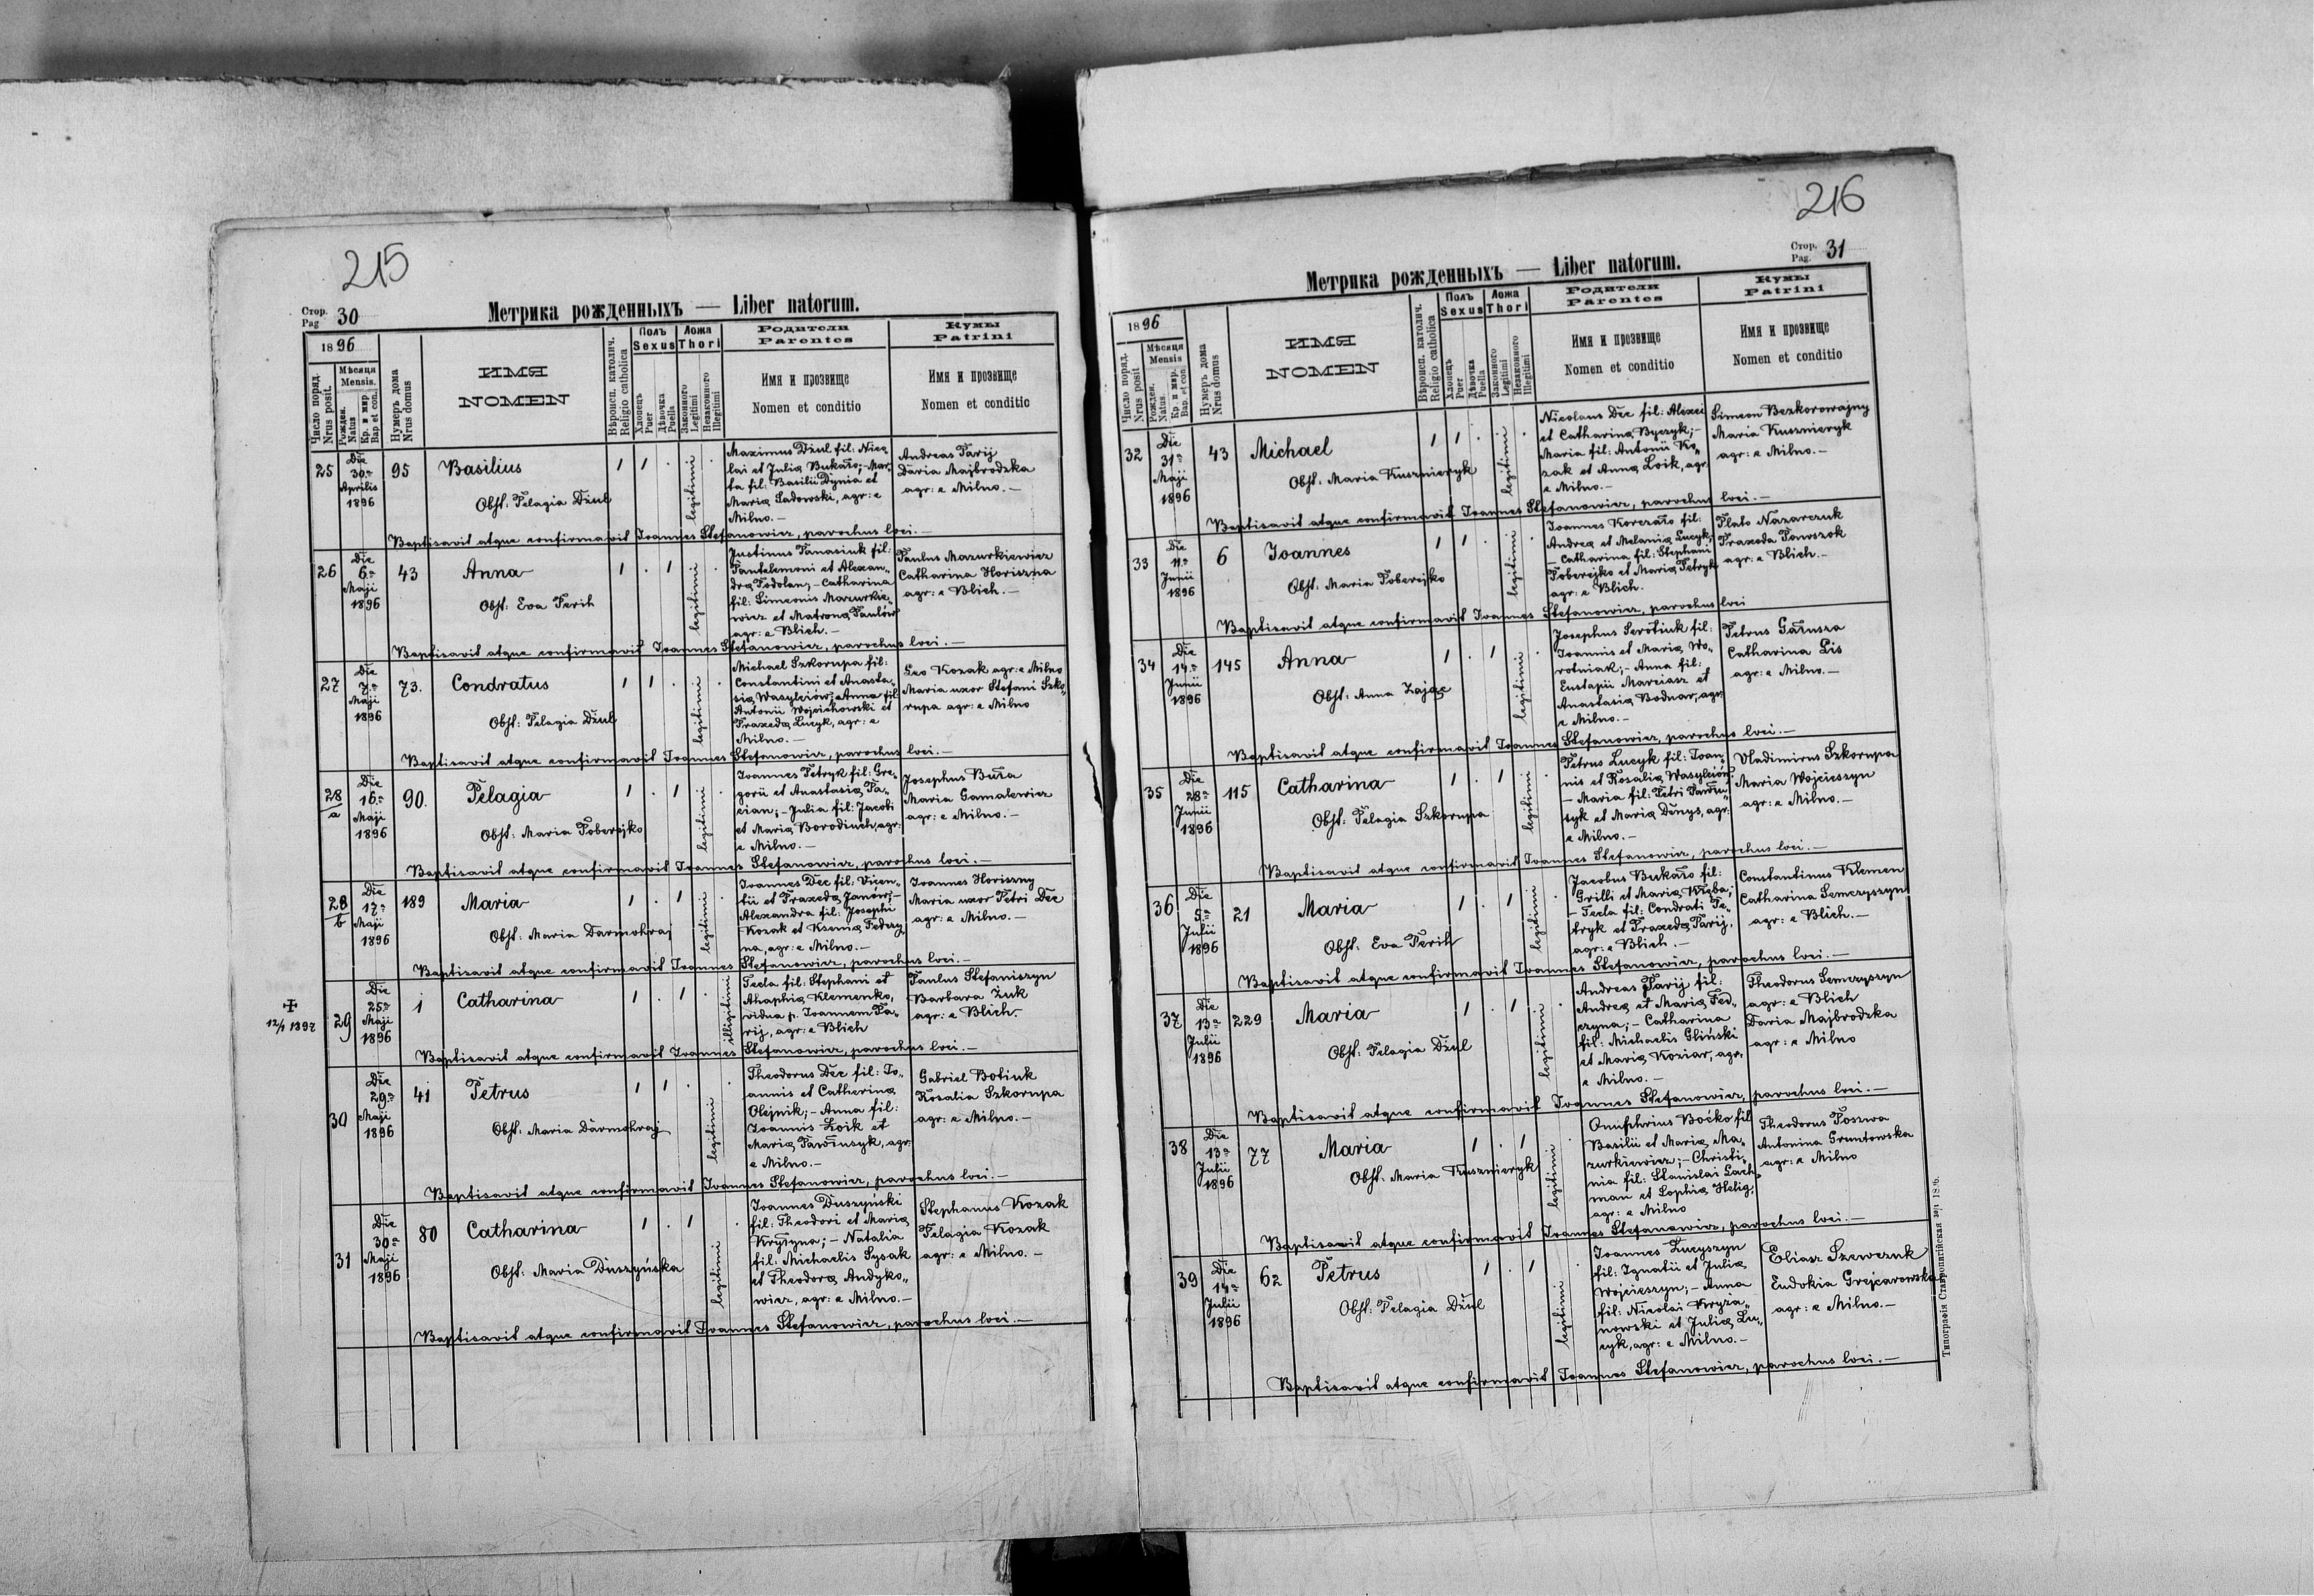 215
Стор.
Pag 30
Метрика рожденныхъ — Liber natorum.
1896
Число поряд.
Nrus posit.
Мѣсяця
Mensis.
Рожден.
Natus
Кр. и мѵр
Bap et con.
Нумеръ дома
Nrus domus
ИМЯ
NOMEN
Вѣроисп. католич.
Religio catholica
Полъ
Sexus
Хлопець
Puer
Дѣвочка
Puella
Ложа
Thori
Законного
Legitimi
Незаконного
Illegitimi
Родители
Parentes
Имя и прозвище
Nomen et conditio
Кумы
Patrini
Имя и прозвище
Nomen et conditio
25
Die
30a
Aprilis
1896
95
Basilius
Obst: Pelagia Dżul
1 1 .
legitimi
Maximus Dżul fil: Nico„
lai et Julia Bukało; – Mar„
ta fil: Basilii Dynia et
Maria Sadowski, agr: e
Milno. –
Andreas Parij
Daria Majbrodzka
agr: e Milno. –
Baptisavit atque confirmavit Joannes Stefanowicz, parochus loci. –
26
Die
6a
Maji
1896
43
Anna
Obst: Eva Perih
1 . 1
legitimi
Justinus Panasiuk fil:
Pantelemoni et Alexan„
dra Podolan; – Catharina
fil: Simeonis Mazurkie„
wicz et Matrona Pawłów
agr: e Blich. –
Paulus Mazurkiewicz
Catharina Horiszna
agr: e Blich. –
Baptisavit atque confirmavit Joannes Stefanowicz, parochus loci. –
27
Die
7a
Maji
1896
73.
Condratus
Obst: Pelagia Dżul
1 1 .
legitimi
Michael Szkorupa fil:
Constantini et Anasta„
sia Wasylciów; Anna fil:
Antonii Wojcichowski et
Praxeda Łucyk, agr: e
Milno. –
Leo Kozak agr: e Milno
Maria uxor Stefani Szko„
rupa agr: e Milno
Baptisavit atque confirmavit Joannes Stefanowicz, parochus loci. –
28/a
Die
16a
Maji
1896
90.
Pelagia
Obst: Maria Poberejko
1 . 1
legitimi
Joannes Petryk fil: Gre„
gorii et Anastasia Pa„
cian; – Julia fil: Jacobi
et Maria Borodiuch, agr:
e Milno. –
Josephus Buła
Maria Gamalewicz
agr: e Milno. –
Baptisavit atque confirmavit Joannes Stefanowicz, parochus loci. –
28/b
Die
17a
Maji
1896
189
Maria
Obst: Maria Darmohraj
1 . 1
legitimi
Joannes Dec fil: Vicen„
tii et Praxeda Janów; –
Alexandra fil: Josephi
Kozak et Ksenia Federy
na, agr: e Milno. –
Joannes Horiszny
Maria uxor Petri Dec
agr: e Milno. –
Baptisavit atque confirmavit Joannes Stefanowicz, parochus loci. –
12/1 1897
29
Die
25a
Maji
1896
1
Catharina
1 . 1 .
illegitimi
Tecla fil: Stephani et
Ahaphia Klemenko,
vidua p. Joannem Pa„
rij, agr: e Blich
Paulus Stefaniszyn
Barbara Żuk
agr: e Blich.
Baptisavit atque confirmavit Joannes Stefanowicz, parochus loci. –
30
Die
29a
Maji
1896
41
Petrus
Obst: Maria Darmohraj
1 1 .
legitimi
Theodorus Dec fil: Jo„
annis et Catherina
Olejnik; – Anna fil:
Joannis Łoik et
Maria Pawlusyk, agr:
e Milno. –
Gabriel Botiuk
Rosalia Szkorupa
agr: e Milno. –
Baptisavit atque confirmavit Joannes Stefanowicz, parochus loci. –
31
Die
30a
Maji
1896
80
Catharina
Obst: Maria Duszyńska
1 . 1
legitimi
Joannes Duszyński
fil: Theodori et Maria
Kryszna; – Natalia
fil: Michaelis Sysak
et Theodora Andyko„
wicz, agr: e Milno. –
Stephanus Kozak
Pelagia Kozak
agr: e Milno. –
Baptisavit atque confirmavit Joannes Stefanowicz, parochus loci. –
216
Стор.
Pag. 31
Метрика рожденныхъ — Liber natorum.
1896
Число поряд.
Nrus posit
Мѣсяця
Mensis
Рожден.
Natus.
Кр. и мѵр.
Bap. et con.
Нумеръ дома
Nrus domus
ИМЯ
NOMEN
Вѣроисп. католич.
Religio catholica
Полъ
Sexus
Хлопець
Puer
Дѣвочка
Puella
Ложа
Thori
Законного
Legitimi
Незаконного
Illegitimi
Родители
Parentes
Имя и прозвище
Nomen et conditio
Кумы
Patrini
Имя и прозвище
Nomen et conditio
32
Die
31a
Maji
1896
43
Michael
Obst: Maria Kusznieryk
1 1 .
legitimi
Nicolaus Dec fil: Alexei
et Catharina Byczyk; –
Maria fil: Antonii Ko„
zak et Anna Łoik, agr
e Milno. –
Simeon Bezkorowajny
Maria Kusznieryk
agr: e Milno. –
Baptisavit atque confirmavit Joannes Stefanowicz, parochus loci. –
33
Die
11a
Junii
1896
6
Joannes
Obst: Maria Poberejko
1 1 .
legitimi
Joannes Korczało fil:
Andrea et Melania Łucyk;
– Catharina fil: Stephani
Poberejko et Maria Petryk
agr: e Blich.
Plato Nazarczuk
Praxeda Pawszok
agr: e Blich. –
Baptisavit atque confirmavit Joannes Stefanowicz, parochus loci
34
Die
14a
Junii
1896
145
Anna
Obst: Anna Zając
1 . 1
legitimi
Josephus Serotiuk fil:
Joannis et Maria Wo„
rotniak; – Anna fil:
Eustapii Marciasz et
Anastasia Bodnar, agr:
e Milno. –
Petrus Gałusza
Catharina Lis
agr: e Milno. –
Baptisavit atque confirmavit Joannes Stefanowicz, parochus loci. –
35
Die
28a
Junii
1896
115
Catharina
Obst: Pelagia Szkorupa
1 . 1
legitimi
Petrus Łucyk fil: Joan„
nis et Rosalia Wasylciów;
– Maria fil: Petri Pawlu„
syk et Maria Dénys, agr:
e Milno. –
Vladimirus Szkorupa
Maria Wojcieszyn
agr: e Milno. –
Baptisavit atque confirmavit Joannes Stefanowicz, parochus loci. –
36
Die
5a
Julii
1896
21
Maria
Obst: Eva Perih
1 . 1
legitimi
Jacobus Bukało fil:
Grilli et Maria Kłęba;
– Tecla fil: Condrati Pe„
tryk et Praxeda Parij,
agr: e Blich. –
Constantinus Klemen
Catharina Semczyszyn
agr: e Blich. –
Baptisavit atque confirmavit Joannes Stefanowicz, parochus loci. –
37
Die
13a
Julii
1896
229
Maria
Obst: Pelagia Dżul
1 . 1
legitimi
Andreas Parij fil:
Andrea et Maria Fed„
czyna; – Catharina
fil: Michaelis Gliński
et Maria Koziar, agr:
e Milno. –
Theodorus Semczyszyn
agr: e Blich
Daria Majbrodzka
agr: e Milno
Baptisavit atque confirmavit Joannes Stefanowicz, parochus loci. –
38
Die
13a
Julii
1896
77
Maria
Obst: Maria Kusznieryk
1 . 1
legitimi
Onuphrius Boćko fil
Basilii et Maria Ma„
zurkiewicz; – Christi„
nia fil: Stanislai Lach„
man et Sophia Helig,
agr: e Milno
Theodorus Poszwa
Antonina Gruntowska
agr: e Milno
Baptisavit atque confirmavit Joannes Stefanowicz, parochus loci. –
39
Die
14a
Julii
1896
62
Petrus
Obst: Pelagia Dżul
1 . 1
legitimi
Joannes Łucyszyn
fil: Ignatii et Julia
Wojcieszyn; – Anna
fil: Nicolai Kryża„
nowski et Julia Łu„
cyk, agr: e Milno. –
Eliasz Szewczuk
Eudokia Grejcarowska
agr: e Milno. –
Baptisavit atque confirmavit Joannes Stefanowicz, parochus loci. –
Типографія Ставропигійская